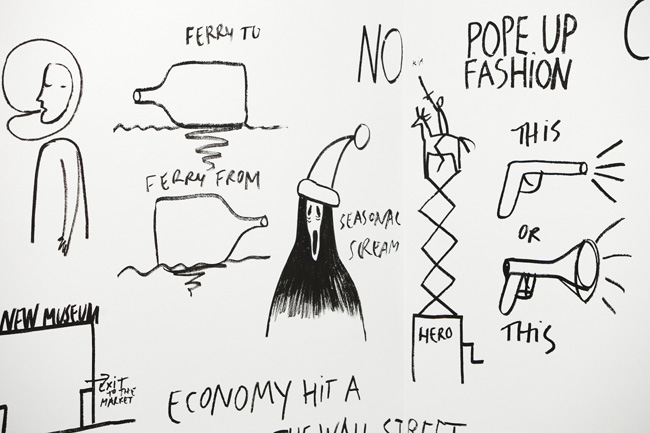 FERRY TO
NO
POPE UP
FASHION
THIS
FERRY FROM
SEASONAL
SCREAM
OR
HERO
THIS
NEW MUSEUM
EXIT
TO THE
MARKET
ECONOMY HIT A
THE WALL STREET